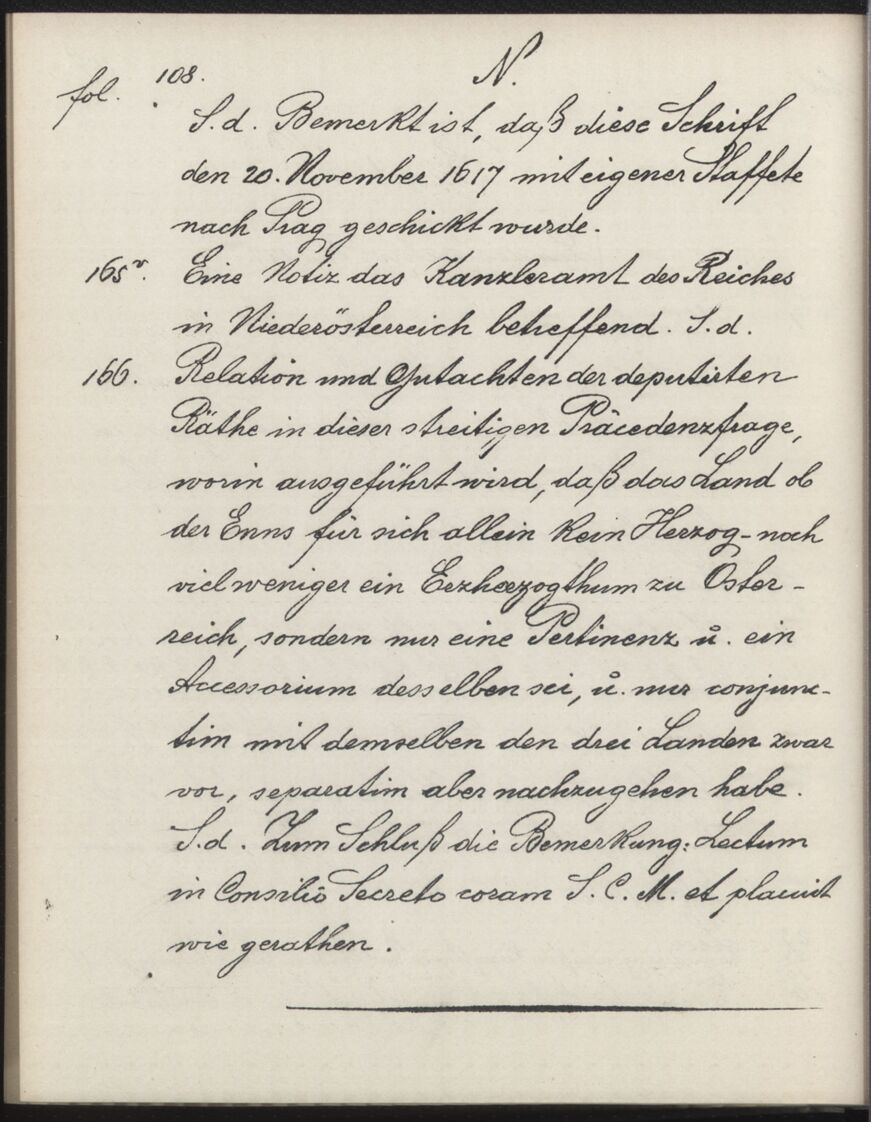 108. N.
fol. S. d. Bemerkt ist, daß diese Schrift
den 20. November 1617 mit eigener Staffete
nach Prag geschickt wurde.
165v. Eine Notiz das Kanzleramt des Reiches
in Niederösterreich betreffend. S. d.
166. Relation und Gutachten der deputirten
Räthe in dieser streitigen Präcedenzfrage,
worin ausgeführt wird, daß das Land ob
der Enns für sich allein kein Herzog- noch
viel weniger ein Erzherzogthum zu Öster-
reich, sondern nur eine Pertinenz u. ein
Accessorium desselben sei, u. nur conjunc-
tim mit demselben den drei Landen zwar
vor, separatim aber nachzugehen habe.
S. d. Zum Schluß die Bemerkung: Lectum
in Consilio Secreto coram S. C. M. et placuit
wie gerathen.